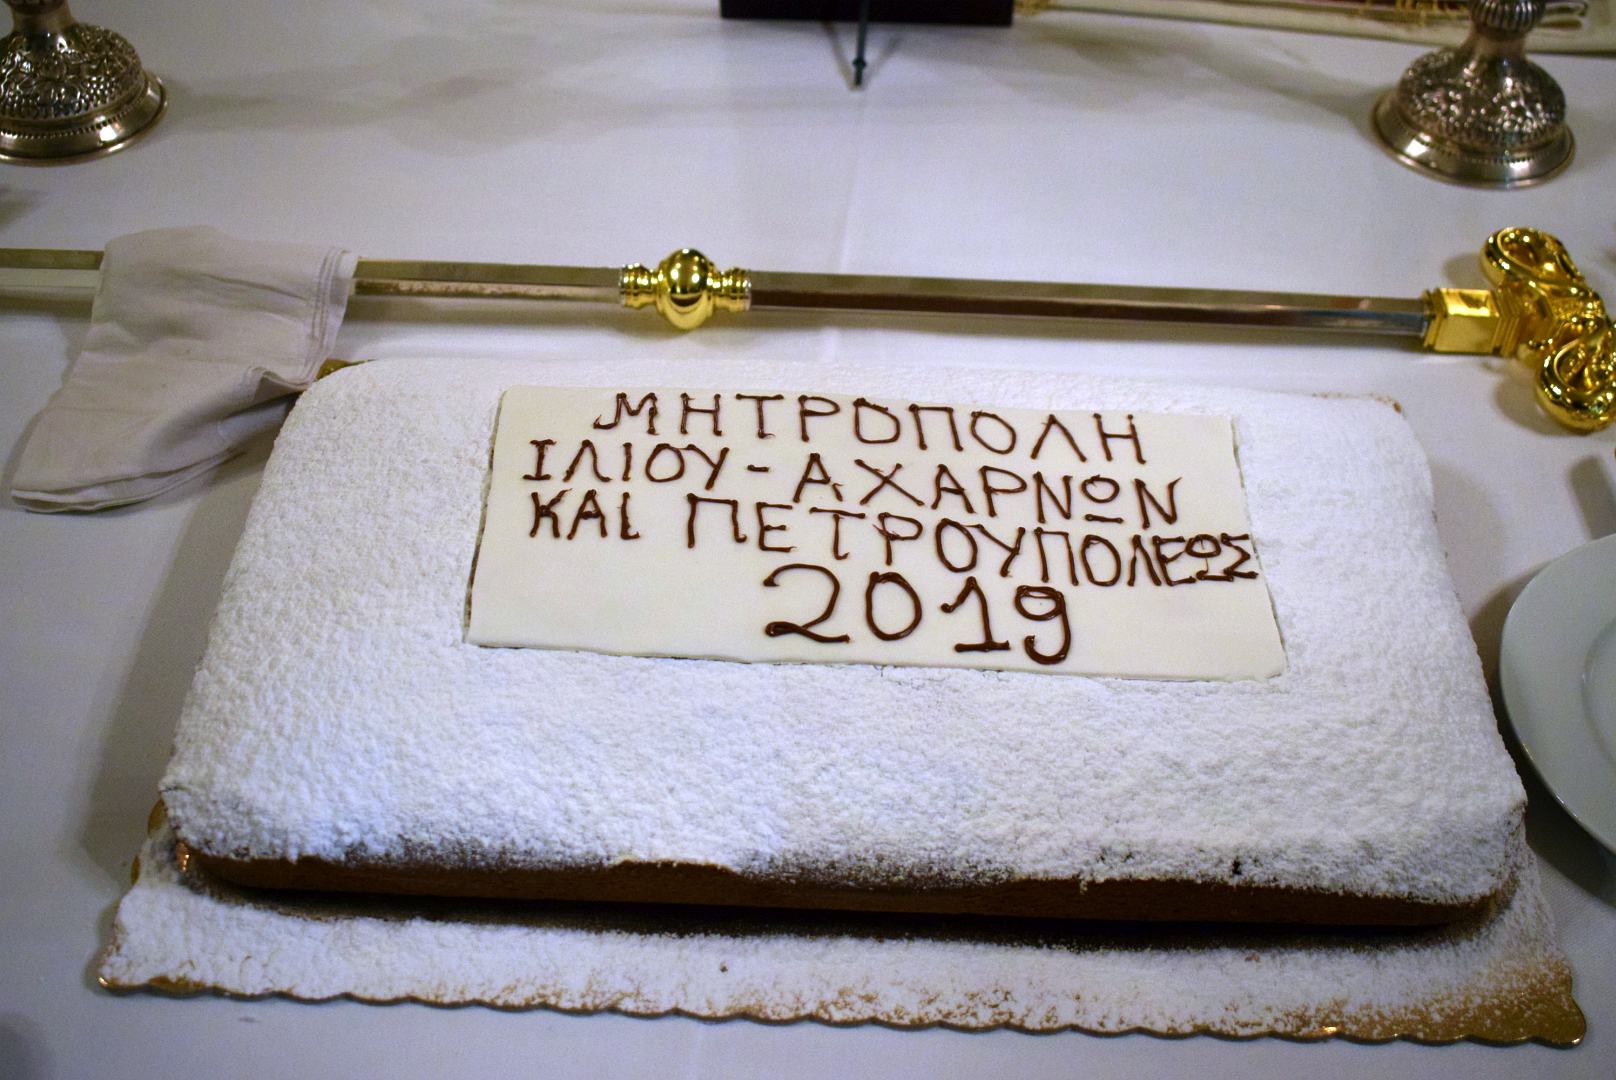 ΜΗΤΡΟΠΟΛΗ
ΙΛΙΟΥ-ΑΧΑΡΝΩΝ
ΚΑΙ ΠΕΤΡΟΥΠΟΛΕΩΣ
2019